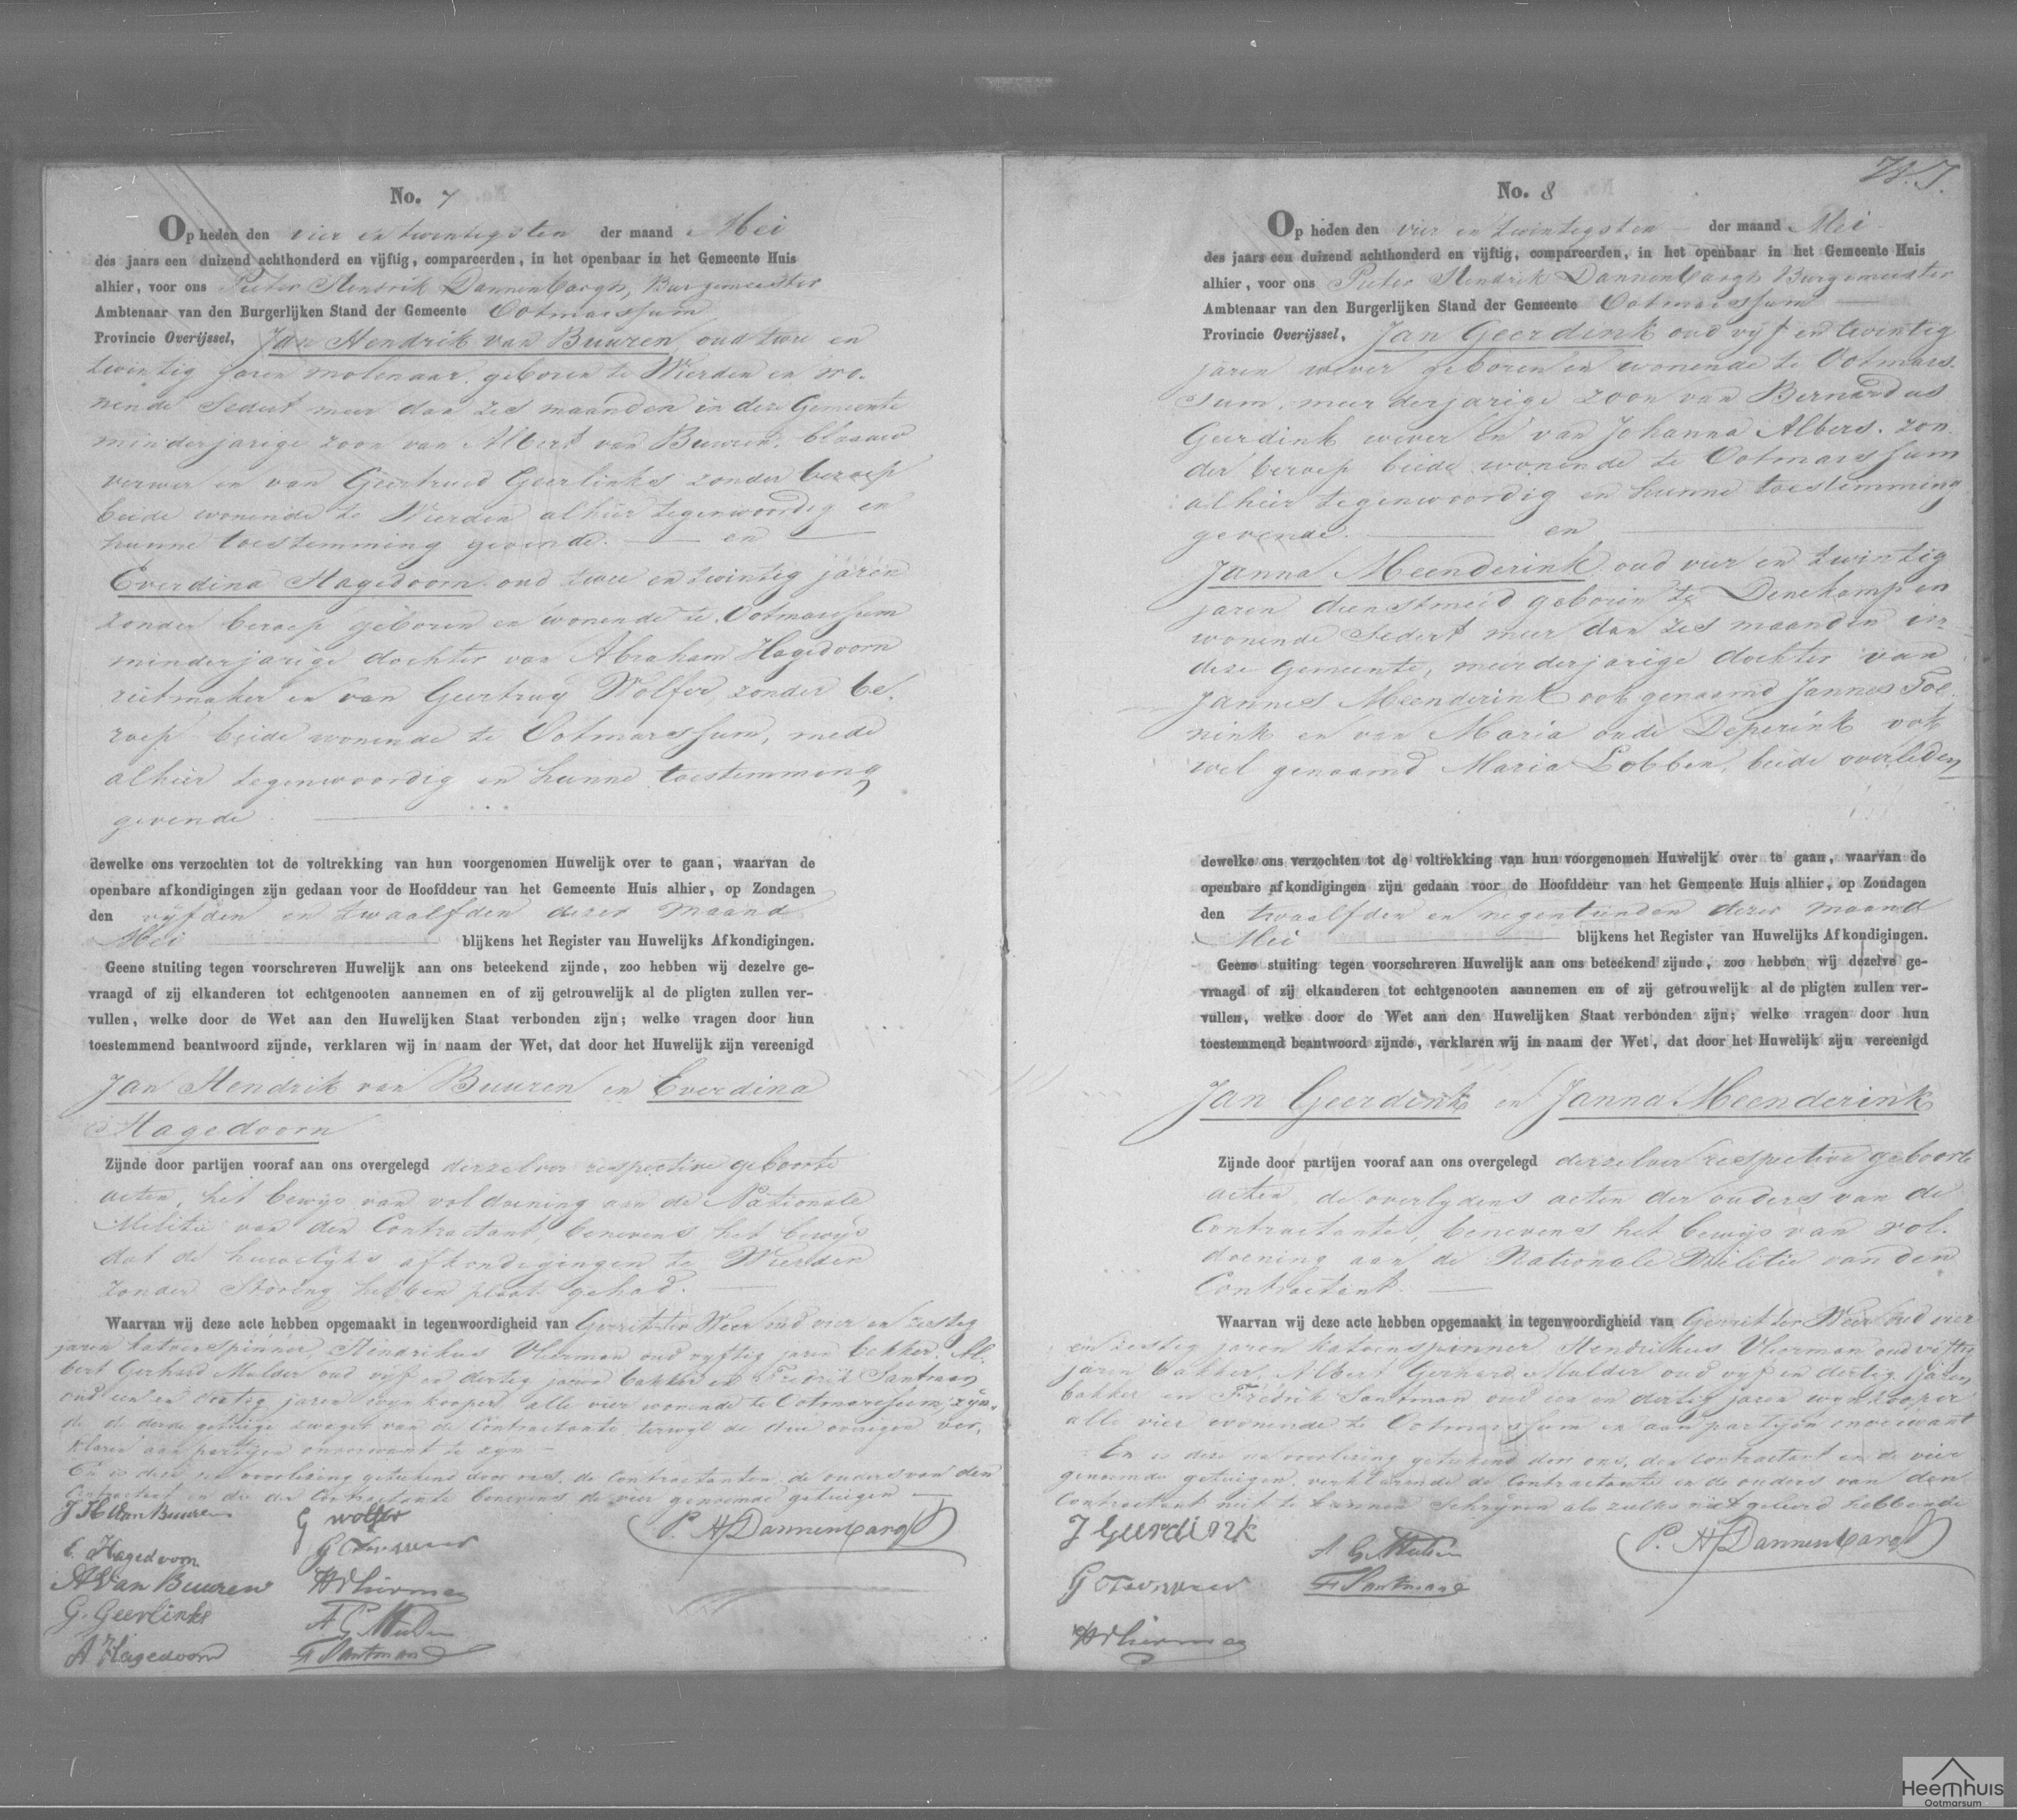 No. 7
Op heden den vier en twintigsten der maand Mei
des jaars een duizend achthonderd en vijftig, compareerden, in het openbaar in het Gemeente Huis
alhier, voor ons Pieter Hendrik Dannenbargh, Burgemeester
Ambtenaar van den Burgerlijken Stand der Gemeente Ootmarssum
Provincie Overijssel, Jan Hendrik van Buuren oud twee en
twintig jaren molenaar geboren te Wierden en wo-
nende sedert meer dan zes maanden in deze Gemeente
minderjarige zoon van Albert van Buuren, blaauw
verwer en van Geertruid Geerlinks zonder beroep
beide wonende te Wierden alhier tegenwoordig en
hunne toestemming gevende. — en —
Everdina Hagedoorn oud twee en twintig jaren
zonder beroep geboren en wonende te Ootmarssum
minderjarige dochter van Abraham Hagedoorn
rietmaker en van Geertruy Wolfer, zonder be-
roep beide wonende te Ootmarssum, mede
alhier tegenwoordig en hunne toestemming
gevende.
dewelke ons verzochten tot de voltrekking van hun voorgenomen Huwelijk over te gaan, waarvan de
openbare afkondigingen zijn gedaan voor de Hoofddeur van het Gemeente Huis alhier, op Zondagen
den vijfden en twaalfden dezer maand
Mei blijkens het Register van Huwelijks Afkondigingen.
Geene stuiting tegen voorschreven Huwelijk aan ons beteekend zijnde, zoo hebben wij dezelve ge-
vraagd of zij elkanderen tot echtgenooten aannemen en of zij getrouwelijk al de pligten zullen ver-
vullen, welke door de Wet aan den Huwelijken Staat verbonden zijn; welke vragen door hun
toestemmend beantwoord zijnde, verklaren wij in naam der Wet, dat door het Huwelijk zijn vereenigd
Jan Hendrik van Buuren en Everdina
Hagedoorn
Zijnde door partijen vooraf aan ons overgelegd derzelver respective geboorte
acten, het bewijs van voldoening aan de Nationale
Militie van den Contractant, benevens het bewijs
dat de huwelijks afkondigingen te Wierden
zonder storing hebben plaats gehad.
Waarvan wij deze acte hebben opgemaakt in tegenwoordigheid van Gerrit ter Weer oud vier en zestig
jaren katoenspinner, Hendrikus Vlierman oud vyftig jaren bakker, Al-
bert Gerhard Mulder oud vijf en dertig jaren bakker en Fredrik Santman
oud een en dertig jaren wynkooper alle vier wonende te Ootmarssum, zijn-
de de derde getuige zwager van de Contractante terwyl de drie overigen ver-
klaren aan partijen onverwant te zyn
En is deze na voorlezing geteekend door ons, de Contractanten de ouders van den
Contractant en die der Contractante benevens de vier genoemde getuigen
J H Van Buuren
G Wolfer
P. H. Dannenbargh
E. Hagedoorn
G ter weer
A Van Buuren
H Vlierman
G. Geerlinks
A G Mulder
A Hagedoorn
F Santman
No. 8
Op heden den vier en twintigsten der maand Mei
des jaars een duizend achthonderd en vijftig, compareerden, in het openbaar in het Gemeente Huis
alhier, voor ons Pieter Hendrik Dannenbargh Burgemeester
Ambtenaar van den Burgerlijken Stand der Gemeente Ootmarssum
Provincie Overijssel, Jan Geerdink oud vyf en twintig
jaren wever geboren en wonende te Ootmars-
sum, meerderjarige zoon van Bernardus
Geerdink wever en van Johanna Albers, zon-
der beroep beide wonende te Ootmarssum
alhier tegenwoordig en hunne toestemming
gevende. — en —
Janna Meenderink oud vier en twintig
jaren dienstmeid geboren te Denekamp en
wonende sedert meer dan zes maanden in
deze Gemeente, meerderjarige dochter van
Jannes Meenderink ook genaamd Jannes Toe-
nink en van Maria oude Deperink ook
wel genaamd Maria Lobben, beide overleden
dewelke ons verzochten tot de voltrekking van hun voorgenomen Huwelijk over te gaan, waarvan de
openbare afkondigingen zijn gedaan voor de Hoofddeur van het Gemeente Huis alhier, op Zondagen
den twaalfden en negentienden dezer maand
Mei blijkens het Register van Huwelijks Afkondigingen.
Geene stuiting tegen voorschreven Huwelijk aan ons beteekend zijnde, zoo hebben wij dezelve ge-
vraagd of zij elkanderen tot echtgenooten aannemen en of zij getrouwelijk al de pligten zullen ver-
vullen, welke door de Wet aan den Huwelijken Staat verbonden zijn; welke vragen door hun
toestemmend beantwoord zijnde, verklaren wij in naam der Wet, dat door het Huwelijk zijn vereenigd
Jan Geerdink en Janna Meenderink
Zijnde door partijen vooraf aan ons overgelegd derzelver respective geboorte
acten, de overlydens acten der ouders van de
Contractante, benevens het bewys van vol-
doening aan de Nationale Militie van den
Contractant.
Waarvan wij deze acte hebben opgemaakt in tegenwoordigheid van Gerrit ter Weer oud vier
en zestig jaren katoenspinner Hendrikus Vlierman oud vijftig
jaren bakker, Albert Gerhard Mulder oud vyf en dertig jaren
bakker en Fredrik Santman oud een en dertig jaren wynkooper
alle vier wonende te Ootmarssum en aan partijen onverwant
En is deze na voorlezing geteekend door ons, den Contractant en de vier
genoemde getuigen, verklarende de Contractante en de ouders van den
Contractant niet te kunnen schryven als zulks niet geleerd hebbende
J Geerdink
A G Mulder
P. H. Dannenbargh
G ter weer
F Santman
H Vlierman
Heemhuis
Ootmarsum